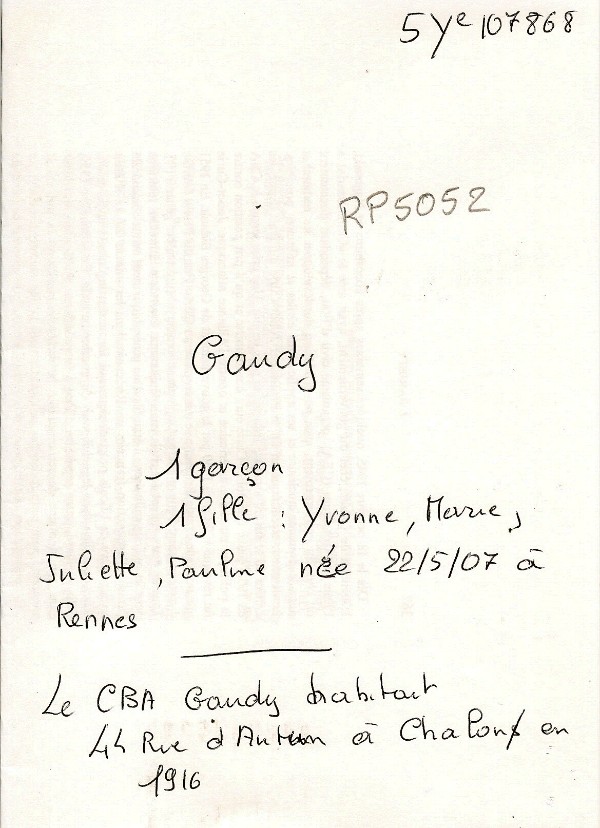 5 Ye 107868
RP5052
Gaudy
1 garçon
1 fille : Yvonne, Marie,
Juliette, Pauline née 22/5/07 à
Rennes
Le CBA Gaudy habitait
44 Rue d'Autun à Chalons en
1916